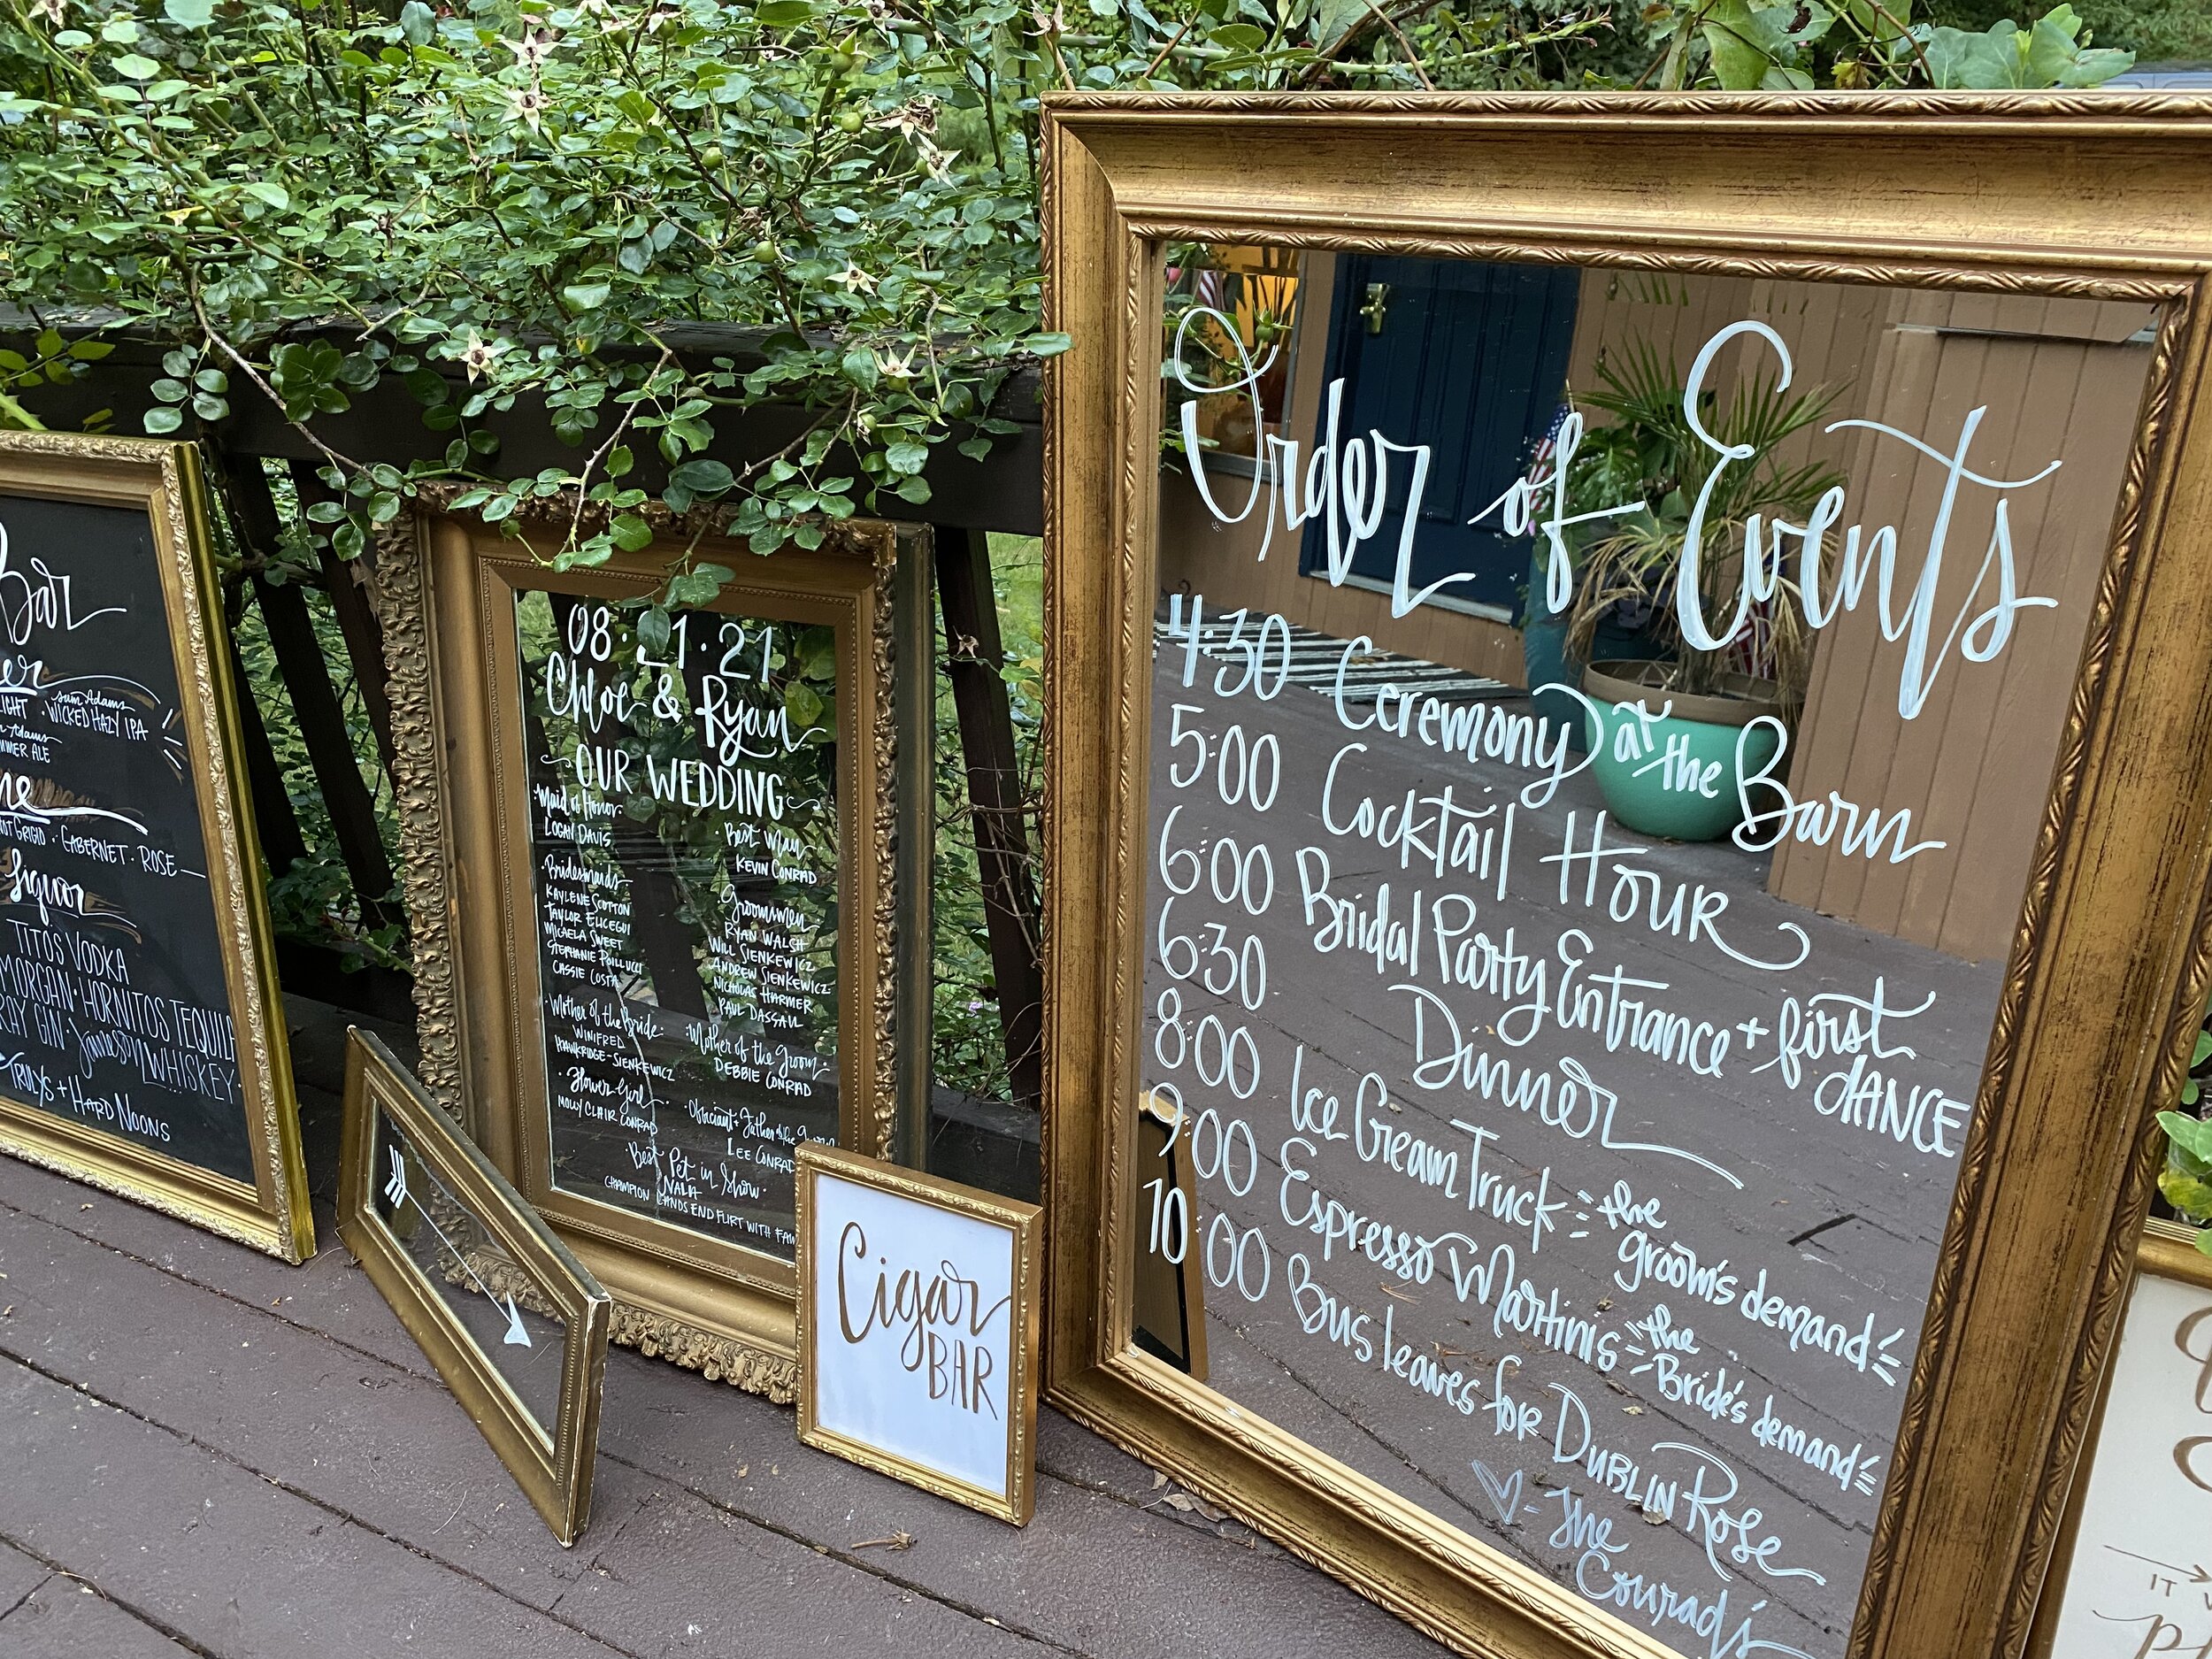 Bar
LIGHT · Sam Adams WICKED HAZY IPA
Adams
SUMMER ALE
GRIGIO · CABERNET · ROSE
Liquor
TITOS VODKA
MORGAN · HORNITOS TEQUILA
GIN · Jameson WHISKEY ·
TRULYS + HARD NOONS
08. 1.21
Chloe & Ryan
OUR WEDDING
Maid of Honor
LOGAN DAVIS
Bridesmaids
KAYLENE SCOTTON
TAYLOR ELICEGUI
MICAELA SWEET
STEPHANIE POILLUCCI
CASSIE COSTA
Mother of the Bride
WINIFRED
HAWKRIDGE-SIENKEWICZ
Flower Girl
MOLLY CLAIR CONRAD
Best Man
KEVIN CONRAD
Groomsmen
RYAN WALSH
WILL SIENKEWICZ
ANDREW SIENKEWICZ
NICHOLAS HARMER
PAUL DASSAU
Mother of the Groom
DEBBIE CONRAD
Officiant + Father of the Groom
LEE CONRAD
Best Pet in Show
NALA
CHAMPION LANDS END FLIRT WITH
Cigar
BAR
Order of Events
4:30 Ceremony at the Barn
5:00 Cocktail Hour
6:00 Bridal Party Entrance + first DANCE
6:30 Dinner
8:00 Ice Cream Truck the groom's demand
9:00 Espresso Martinis the Bride's demand
10:00 Bus leaves for Dublin Rose
♡ - The
Conrad's
IT